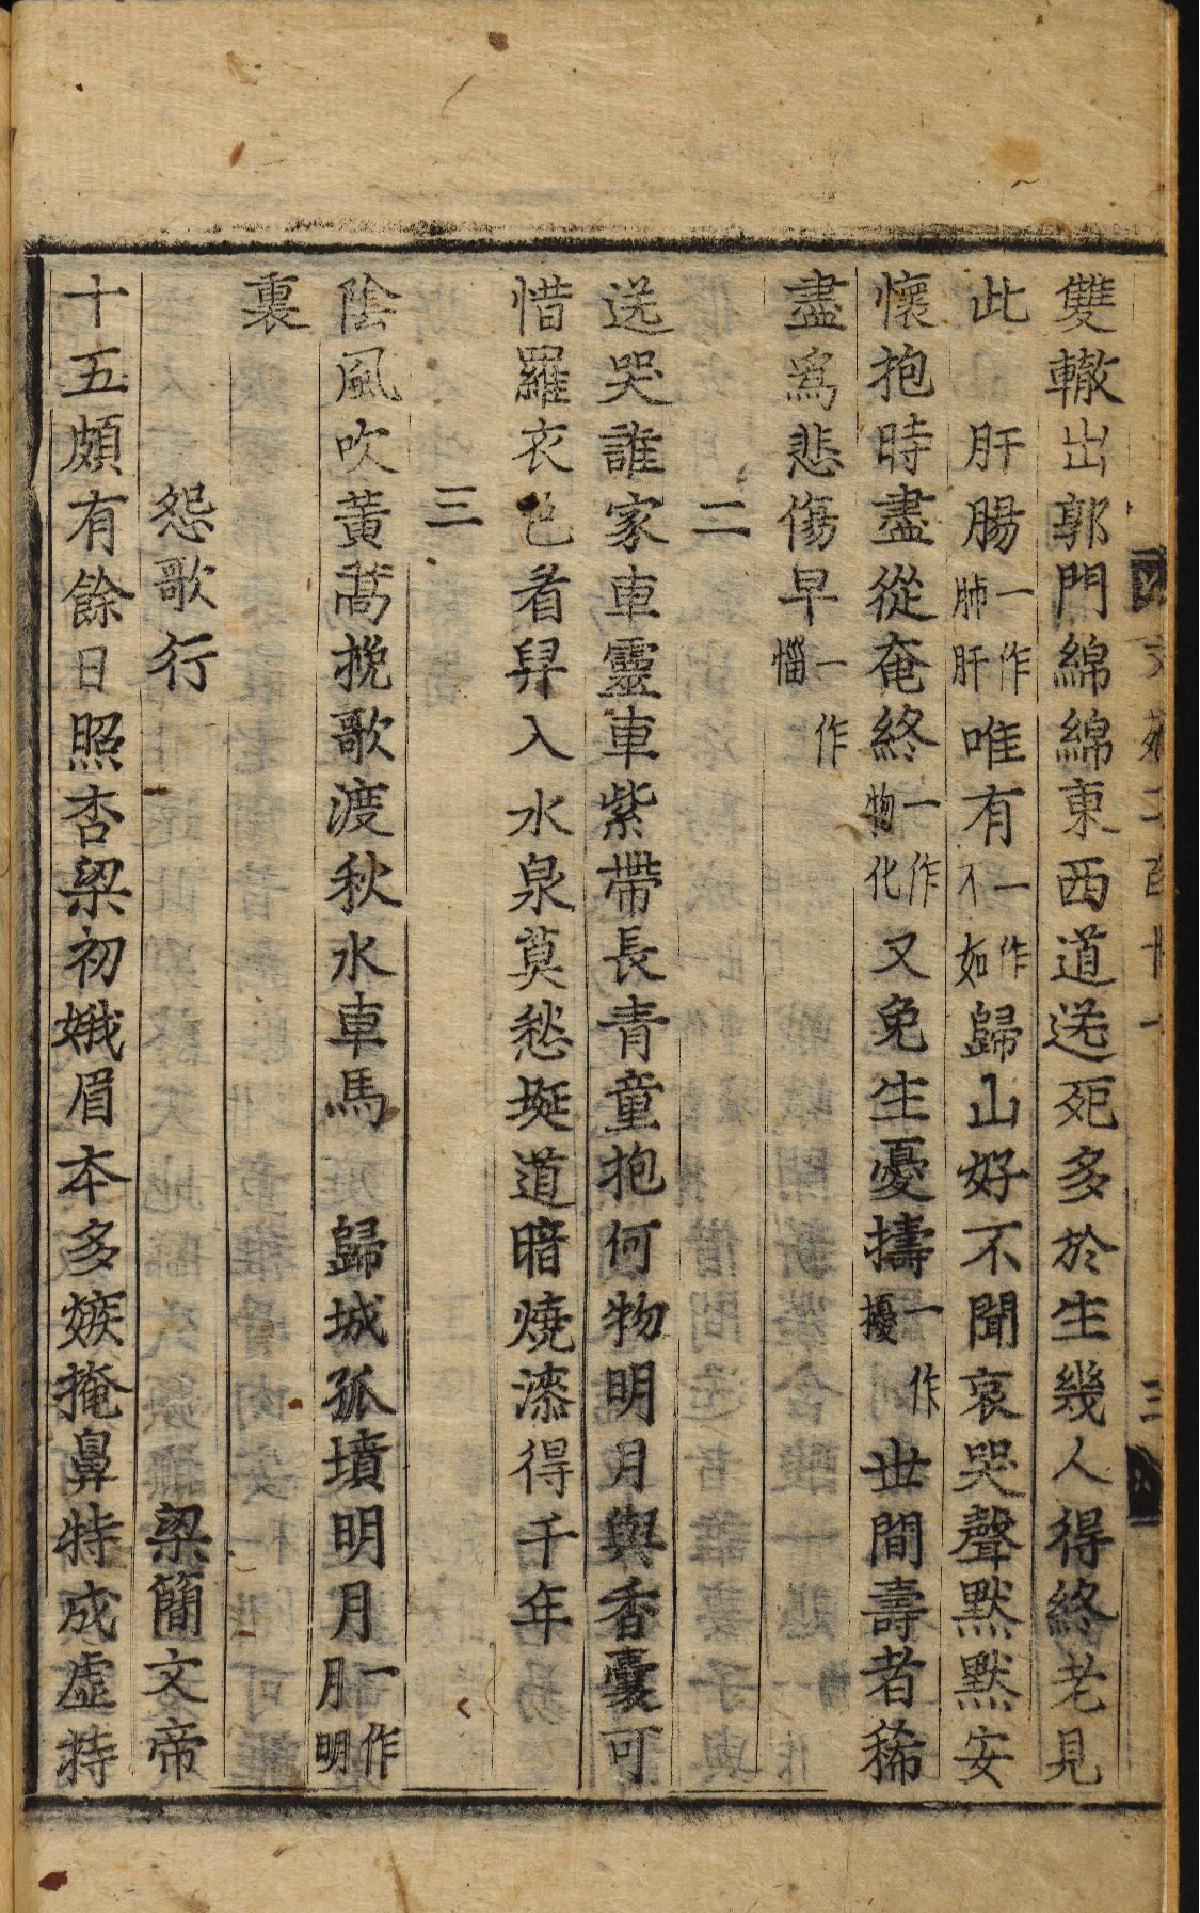 雙轍出郭門綿綿東西道送死多於生幾人得終老見
此肝腸一作肺肝唯有一作不如歸山好不聞哀哭聲默默安
懷抱時盡從奄終一作物化又免生憂擣一作擾世間壽者稀
盡爲悲傷早一作惱
二
送哭誰家車靈車紫帶長青童抱何物明月與香囊可
惜羅衣色看舁入水泉莫愁埏道暗燒漆得千年
三
陰風吹黃蒿挽歌渡秋水車馬歸城孤墳明月一作月明
裏
怨歌行 梁簡文帝
十五頗有餘日照杏梁初娥眉本多嫉掩鼻特成虛持